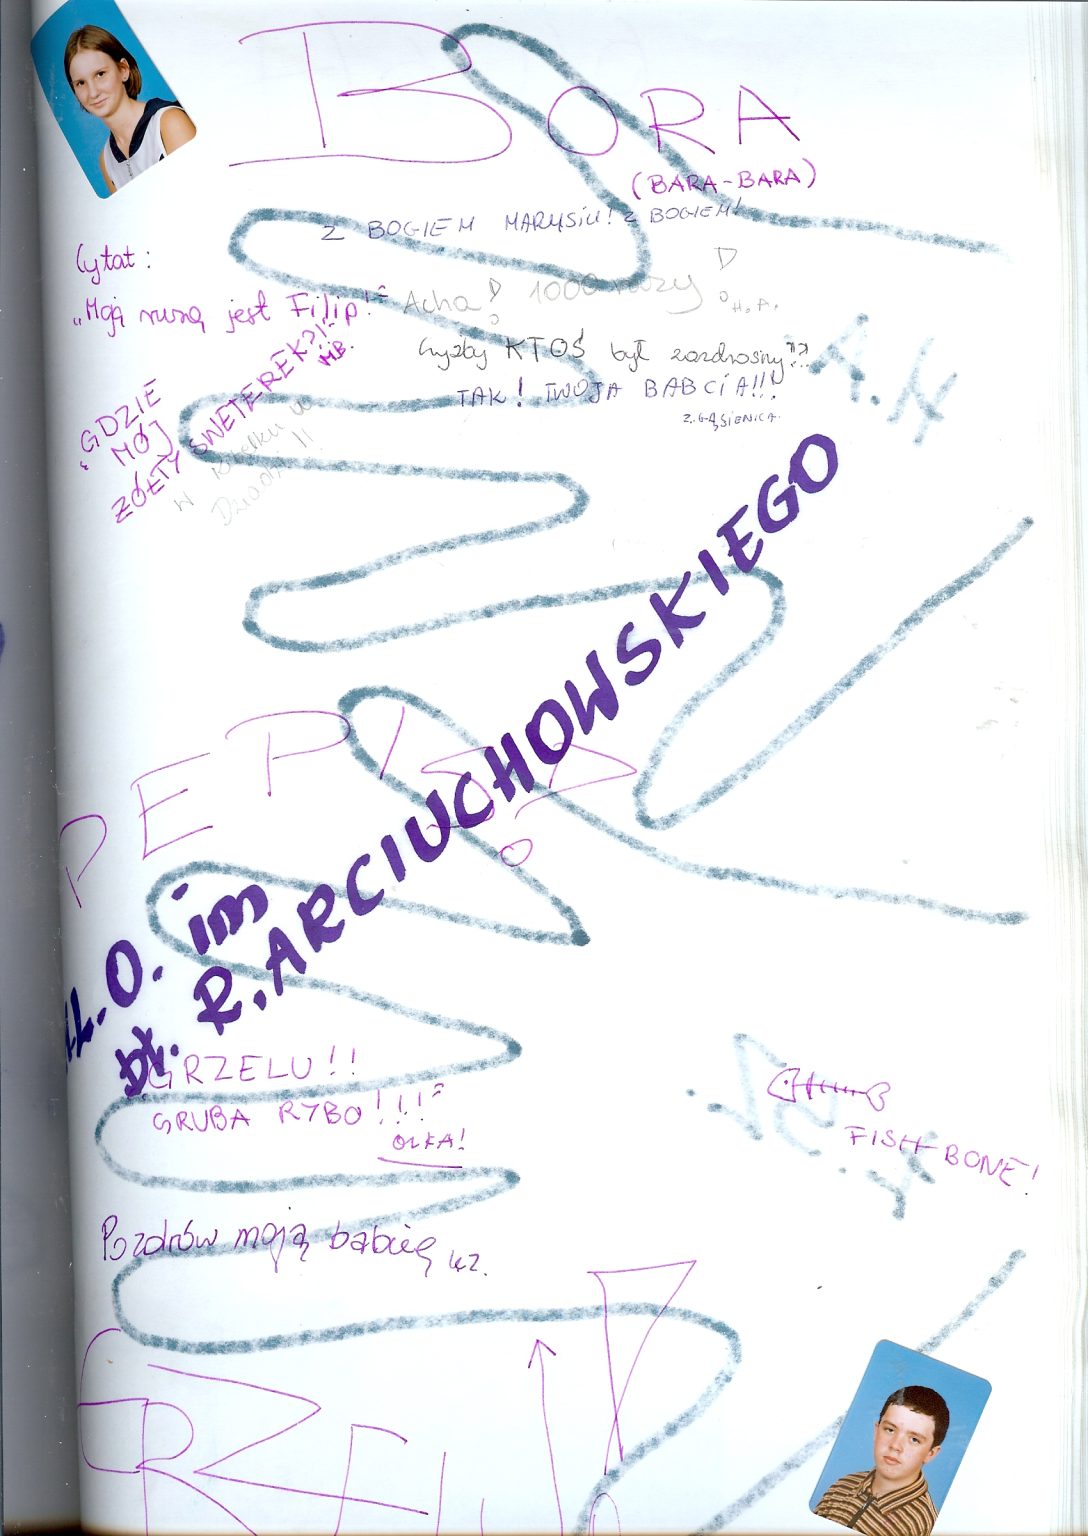 BORA
(BARA-BARA)
Z BOGIEM MARYSIU! Z BOGIEM!
Cytat:
"Moją muzą jest Filip!"
Acha! 1000 razy! H.A.
Czyżby KTOŚ był zazdrosny?!?
TAK! TWOJA BABCIA!!!
Z. GĄSIENICA.
"GDZIE
MÓJ
ŻÓŁTY SWETEREK?!"
MB.
A.H
PEPIS
L.O. im
bł. R. ARCIUCHOWSKIEGO
GRZELU!!
GRUBA RYBO!!!
OLKA!
FISH BONE!
Pozdrów moją babcię
GRZELU!